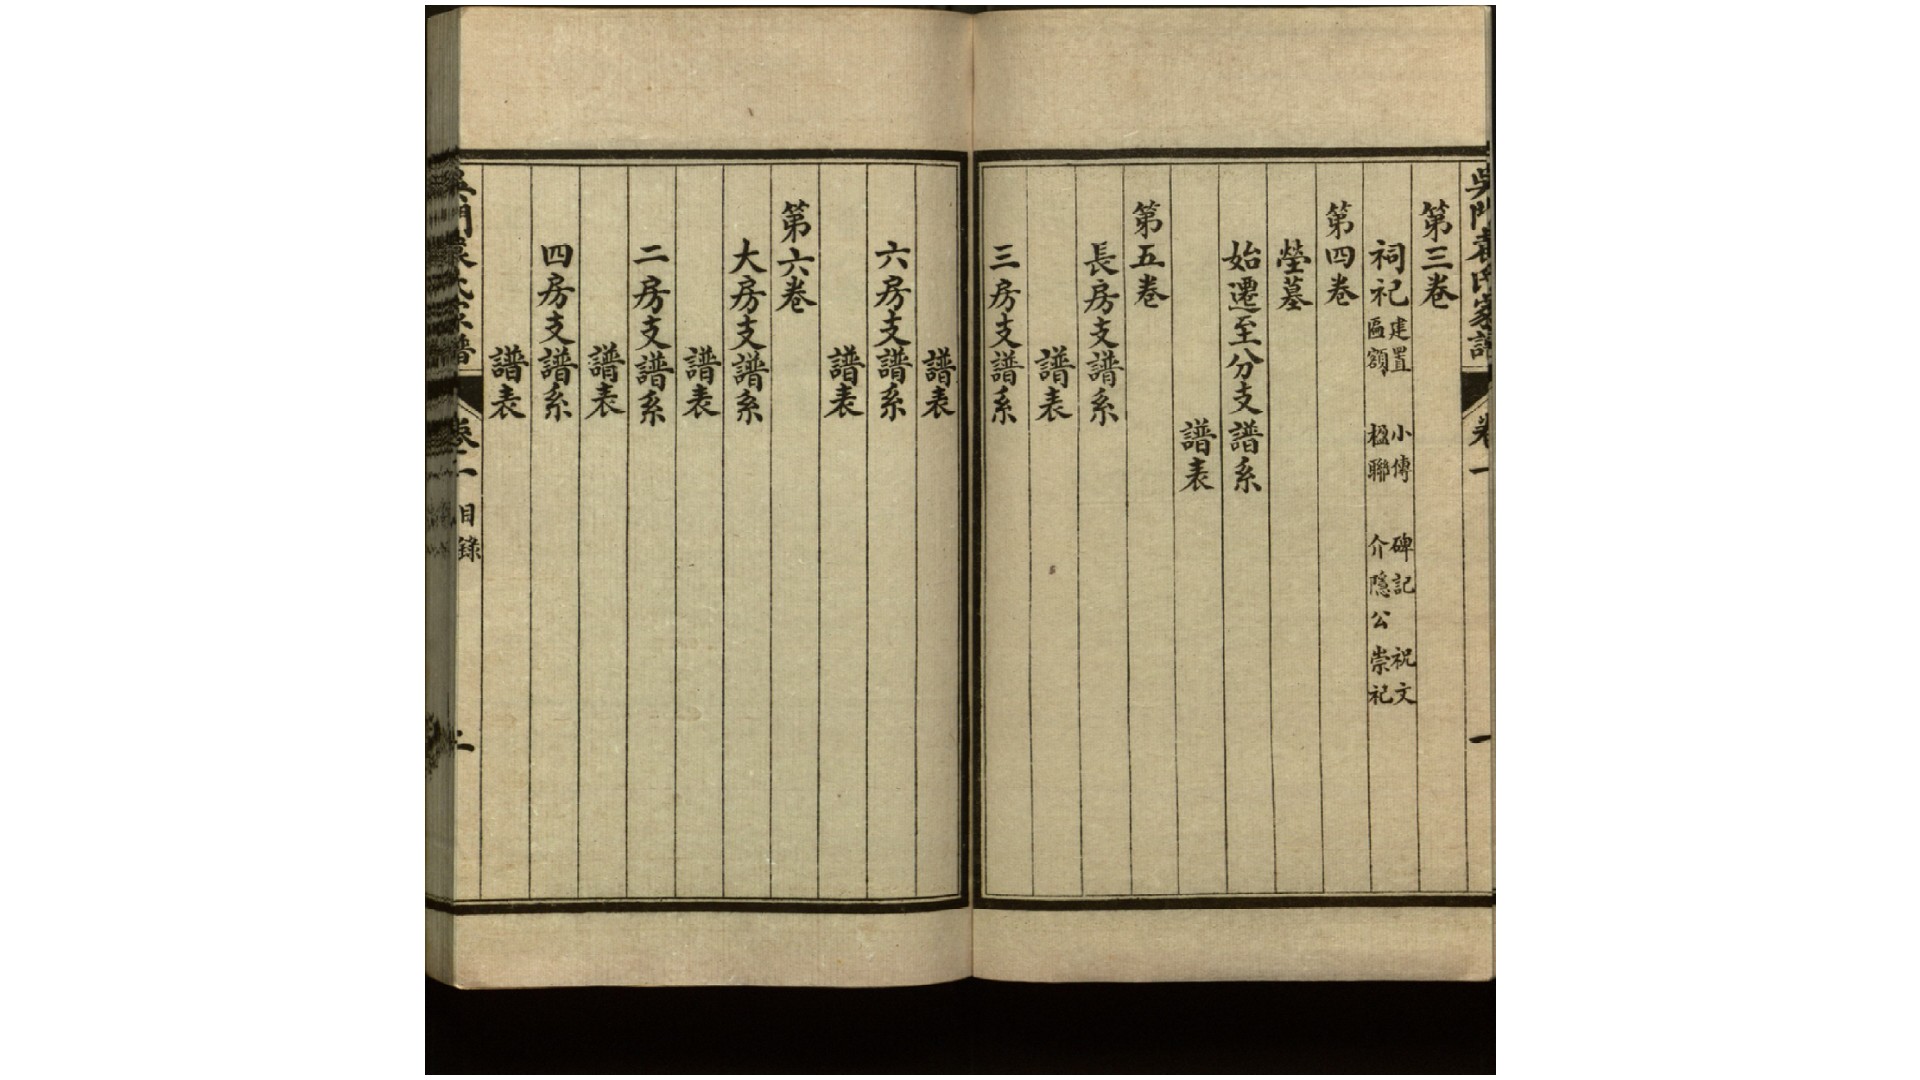 吳門袁氏家譜 卷一 一
第三卷
祠祀 建置 小傳 碑記 祝文
匾額 楹聯 介隱公崇祀
第四卷
塋墓
始遷至分支譜系
譜表
第五卷
長房支譜系
譜表
三房支譜系
譜表
六房支譜系
譜表
第六卷
大房支譜系
譜表
二房支譜系
譜表
四房支譜系
譜表
吳門袁氏家譜 卷一 目錄 二